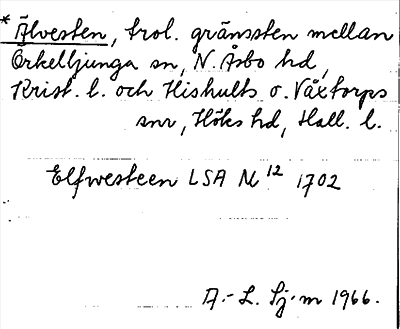 * Älvesten, trol. gränssten mellan
Örkelljunga sn, N. Åsbo hd,
Krist. l. och Hishults o. Våxtorps
snr, Höks hd, Hall. l.
Elfwesteen LSA M 12 1702
A.-L. Sj-m 1966.